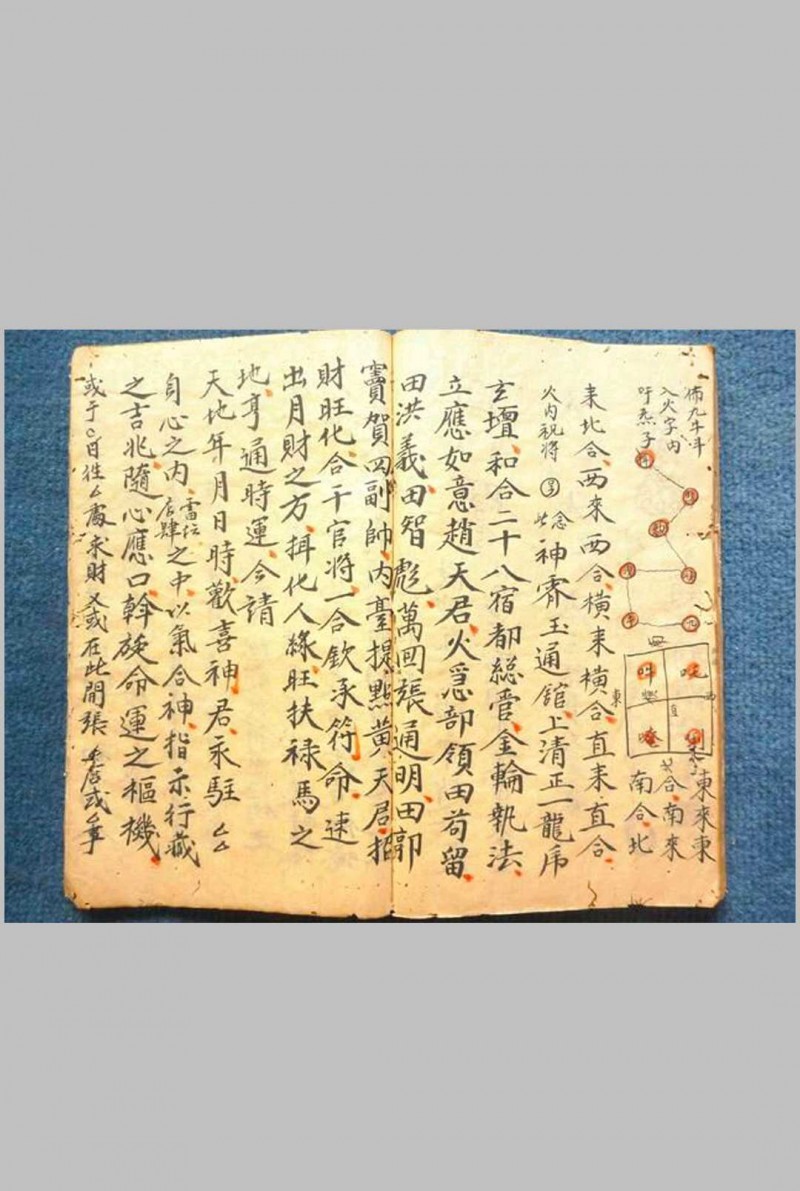 佈九牛斗
入火字內
吁炁子
東來東
合南來
南合北
來北合西來西合橫來橫合直來直合
火內祝將 念
神霄玉通館上清正一龍虎
玄壇和合二十八宿都總管金輪執法
立應如意趙天君火急部領田苟留
田洪義田智彪萬回張通明田郭
竇賀四副帥內臺提點黃天君招
財旺化合干官將一合欽承符命速
出月財之方揖化人緣旺扶祿馬之
地亨通時運今請
天地年月日時歡喜神君永駐厶厶
自心之內雷坛店肆之中以氣合神指示行藏
之吉兆隨心應口斡旋命運之樞機
或于日往厶處求財又或在此開張厶店或厶事